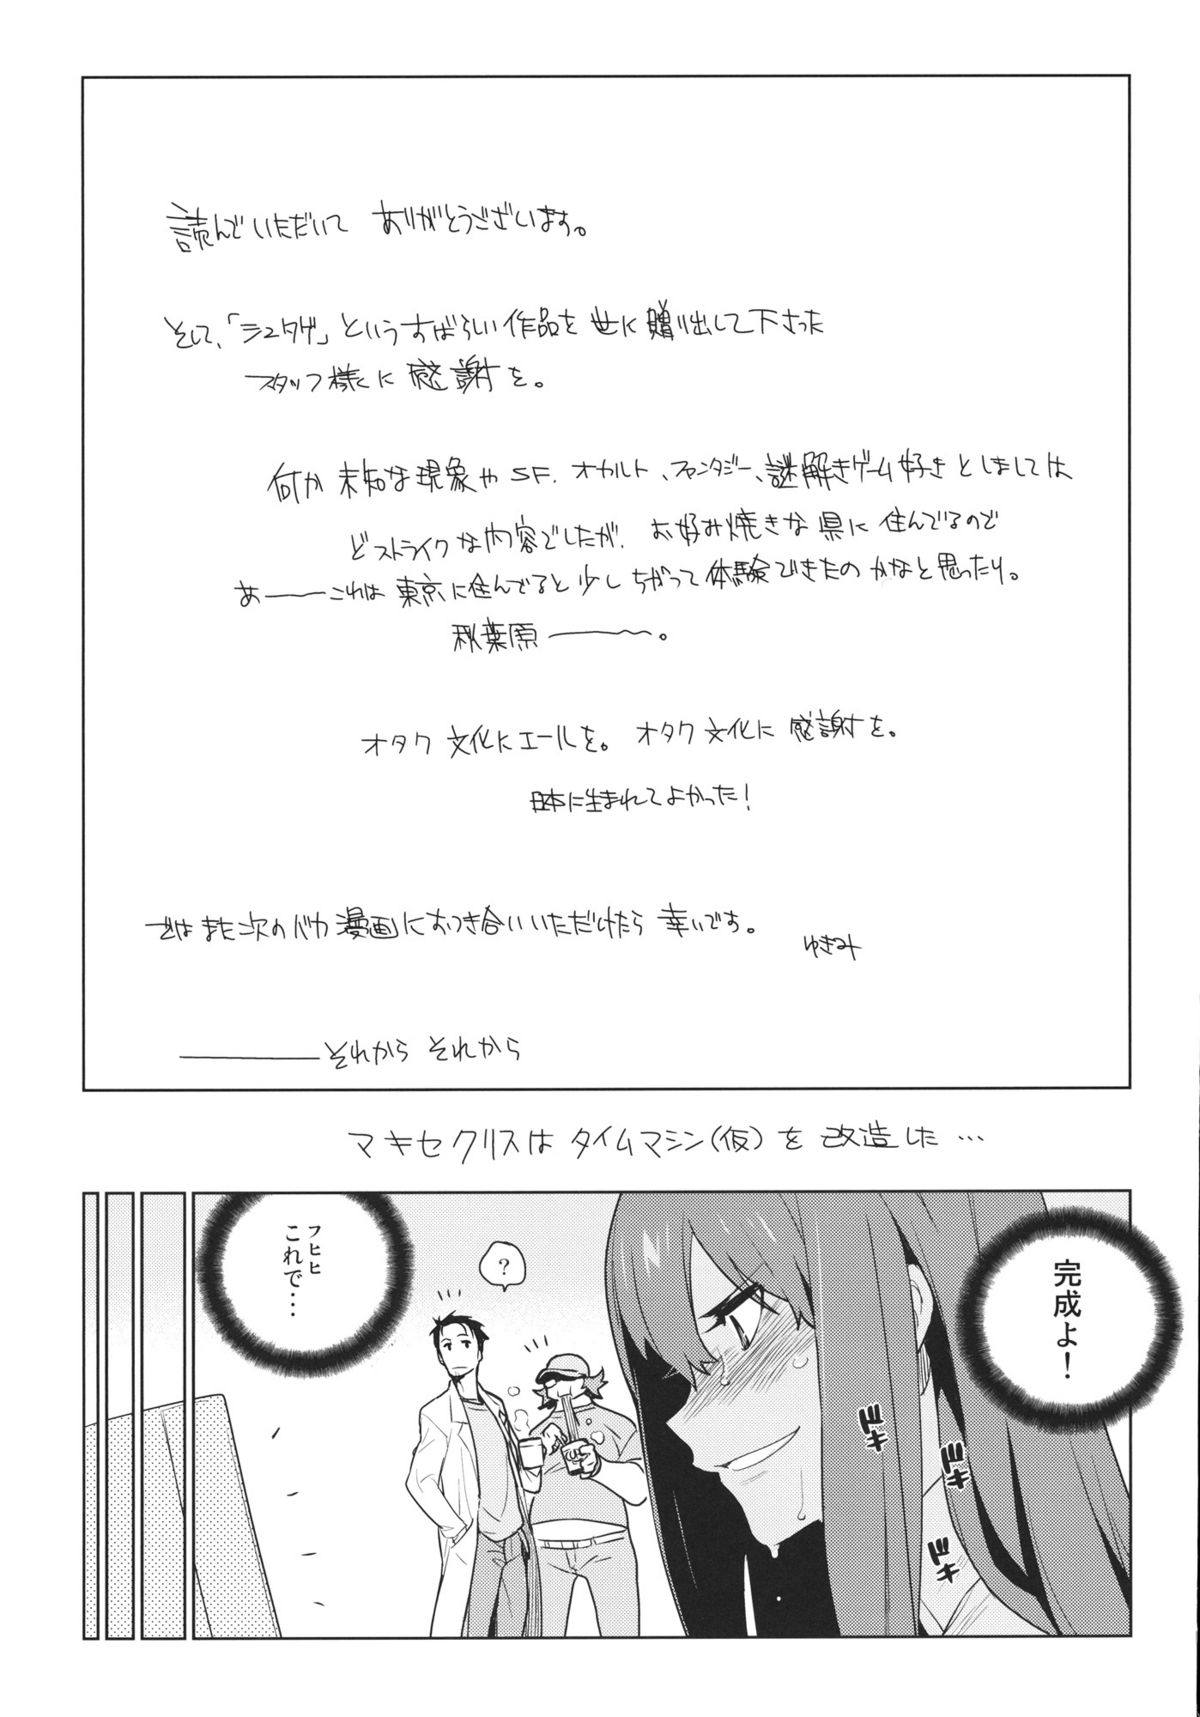 読んでいただいて ありがとうございます。
そして、「シュタゲ」というすばらしい作品を世に贈り出して下さった
スタッフ様々に感謝を。
何か未知な現象やSF、オカルト、ファンタジー、謎解きゲーム好きとしましては
どストライクな内容でしたが、お好み焼きな県に住んでるので
あーーーこれは東京に住んでると少しちがって体験できたのかなと思ったり。
秋葉原ーーー〜。
オタク文化にエールを。オタク文化に感謝を。
日本に生まれてよかった!
ではまた次のバカ漫画におつき合いいただけたら幸いです。
ゆきみ
――――それから それから
マキセクリスは タイムマシン(仮)を 改造した…
完成よ!
ドキ
ドキ
ドキ
?
フヒヒ
これで…